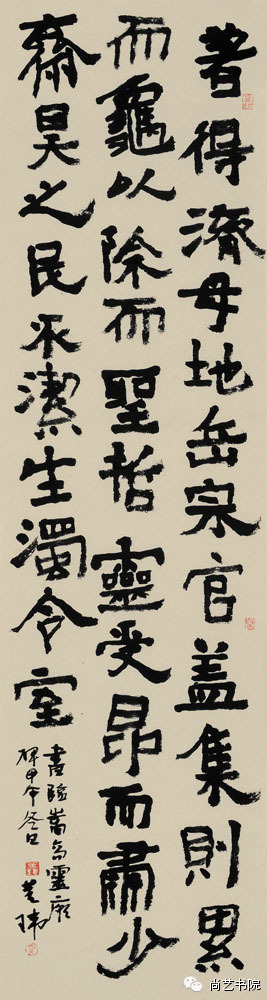 著得濟毋地岳宗官盖集則累
而龜以除而聖哲靈受昂而肅少
齋昊之民潔生濁令室
書臨嵩高靈廟
碑甲午冬日
尚艺书院